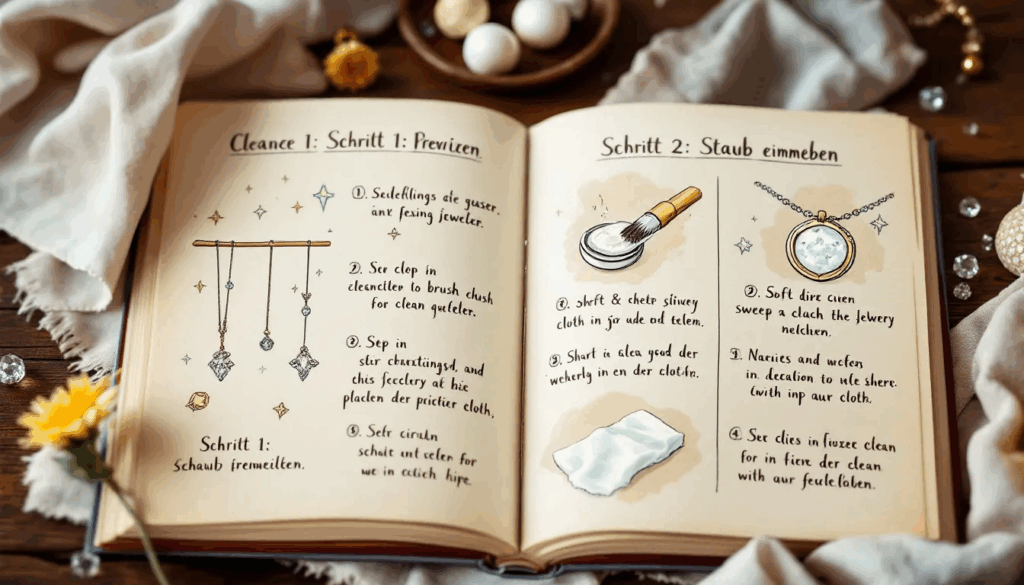 Cleance 1: Schritt 1: Previzen
①. Sedeflilngs ate guser.
anx fexing jeweler.
②. Ser clop in
cleanciler to brush chush
for clean gufeler.
③. Sep in
slir chxrtlingsd, and
chis feeclery at hie
placlen der prictier cloth,
⑤. Sefr ciruln
schule unt celen for
we in catich hipe.
Schritt 1:
Schaub iremeilten.
Schritt 2: Staub eimmeben
shft & chetr sliwey
cloth in jor ude od telem.
③. Shart is alea yead der
weherly in en der clotfn.
②. Soft dirc cuen
sweep a clach the Jewery
nelchen.
Nacries and wefen
in. decalion to wle shere.
(with inp aur cloth.
④. Ser clies in fivzer clean
for in fiere der clean
with aur feulefaben.